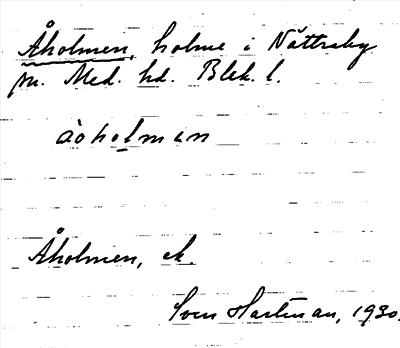 Åholmen, holme i Nättraby
sn. Med. hd. Blek. l.
åoholmən
Åholmen, ek.
Sven Hartman, 1930.